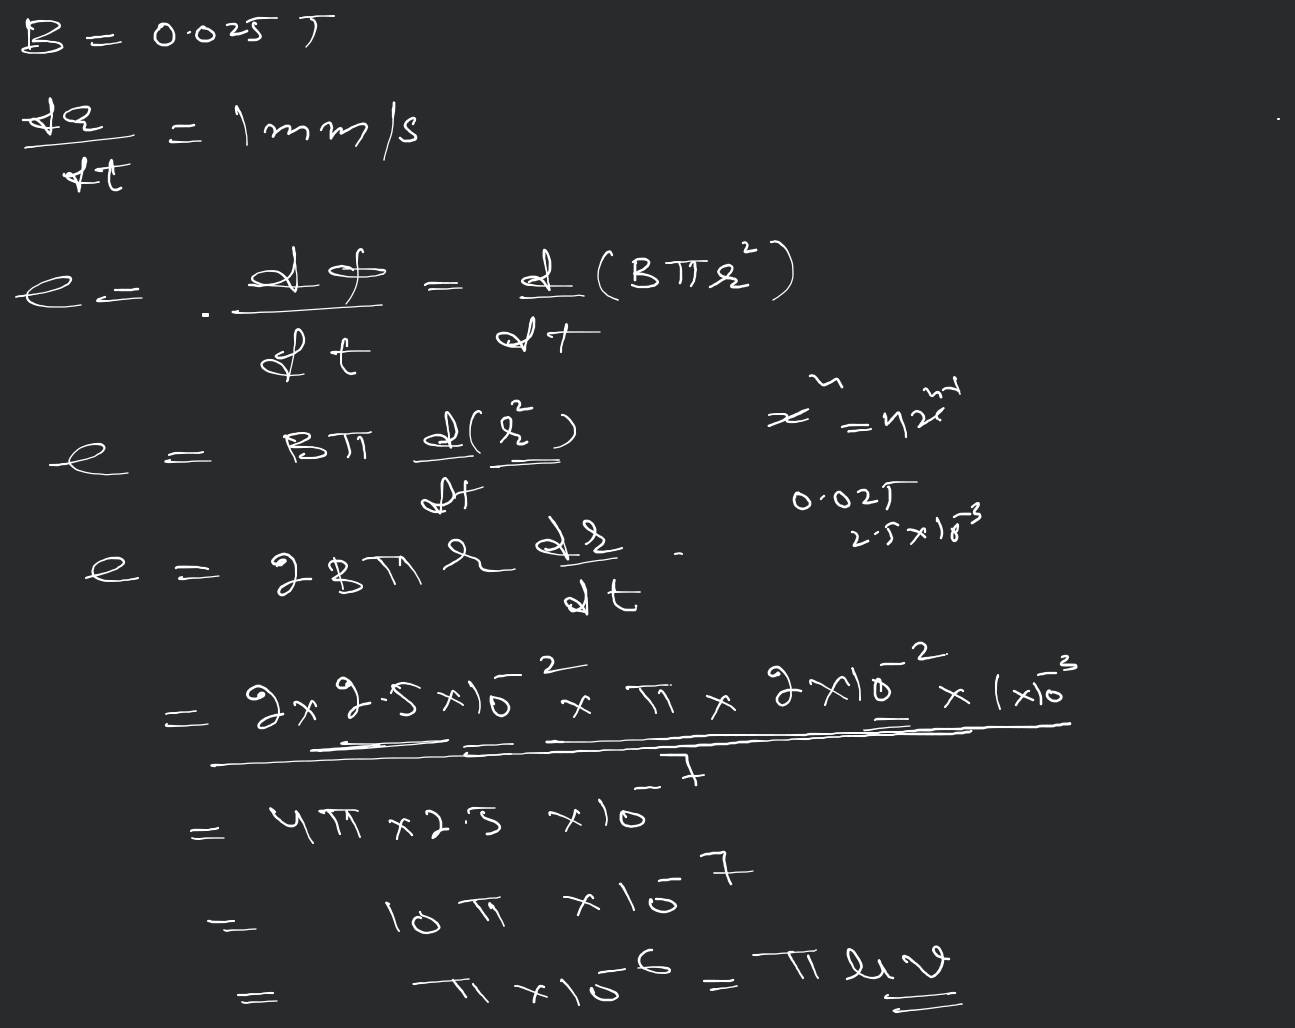 B = 0.025 T
dr/dt = 1 mm/s
e = dφ/dt = d/dt (Bπr²)
e = Bπ d(r²)/dt
xⁿ = nxⁿ⁻¹
0.025
2.5 × 10⁻³
e = 2Bπ r dr/dt
= 2 × 2.5 × 10⁻² × π × 2 × 10⁻² × 1 × 10⁻³
= 4π × 2.5 × 10⁻⁷
= 10π × 10⁻⁷
= π × 10⁻⁶ = π μV